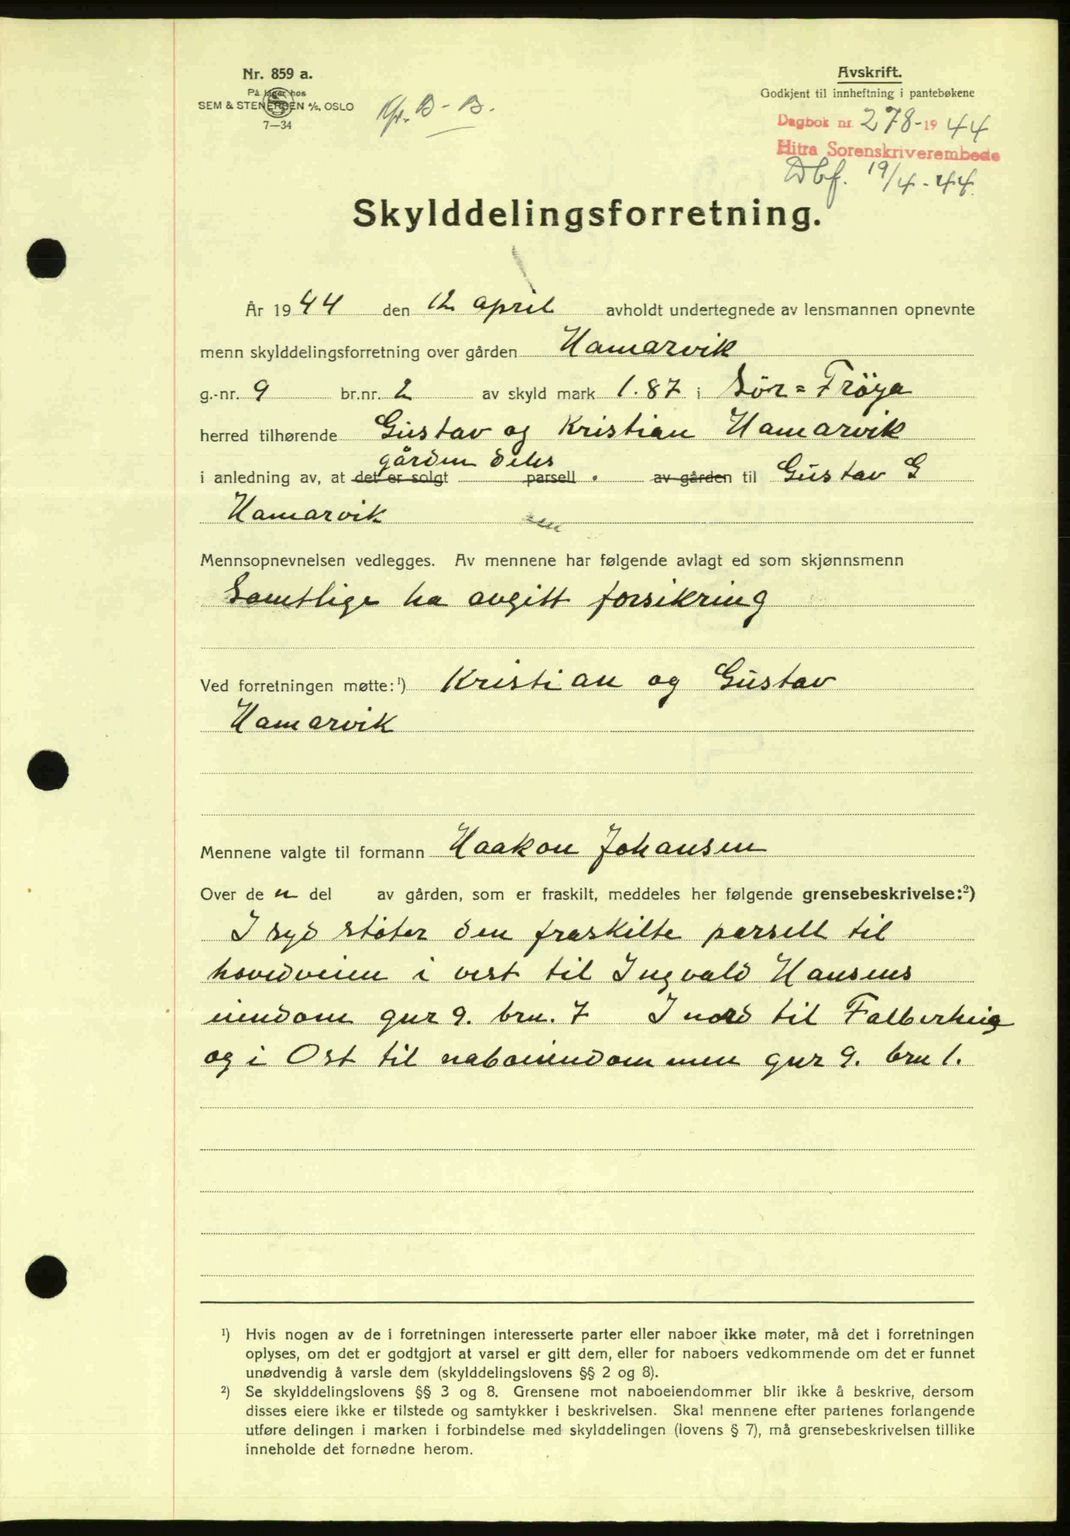 Nr. 859 a.
På lager hos
SEM & STENERSEN A/S, OSLO
7—34
B-B.
Avskrift.
Godkjent til innheftning i pantebøkene
Dagbok nr. 278-1944
Hitra Sorenskriverembede
Dbf. 19/4-44
Skylddelingsforretning.
År 1944 den 12 april avholdt undertegnede av lensmannen opnevnte
menn skylddelingsforretning over gården Hamarvik
g.-nr. 9 br.nr. 2 av skyld mark 1.87 i Sör=Fröya
herred tilhørende Gustav og Kristian Hamarvik
gården deles
i anledning av, at det er solgt parsell . av gården til Gustav G
Hamarvik
Mennsopnevnelsen vedlegges. Av mennene har følgende avlagt ed som skjønnsmenn
Samtlige ha avgitt forsikring
Ved forretningen møtte:¹) Kristian og Gustav
Hamarvik
Mennene valgte til formann Haakon Johansen
Over de n del av gården, som er fraskilt, meddeles her følgende grensebeskrivelse:²)
I syd støter den fraskilte parsell til
hovedveien i vest til Ingvald Hansens
eiendom gnr 9. brn. 7 I nord til
og i Ost til naboeiendommen gnr 9. brn 1.
¹) Hvis nogen av de i forretningen interesserte parter eller naboer ikke møter, må det i forretningen
oplyses, om det er godtgjort at varsel er gitt dem, eller for naboers vedkommende om det er funnet
unødvendig å varsle dem (skylddelingslovens §§ 2 og 8).
²) Se skylddelingslovens §§ 3 og 8. Grensene mot naboeiendommer blir ikke å beskrive, dersom
disses eiere ikke er tilstede og samtykker i beskrivelsen. Skal mennene efter partenes forlangende
utføre delingen i marken i forbindelse med skylddelingen (lovens § 7), må grensebeskrivelsen tillike
inneholde det fornødne herom.